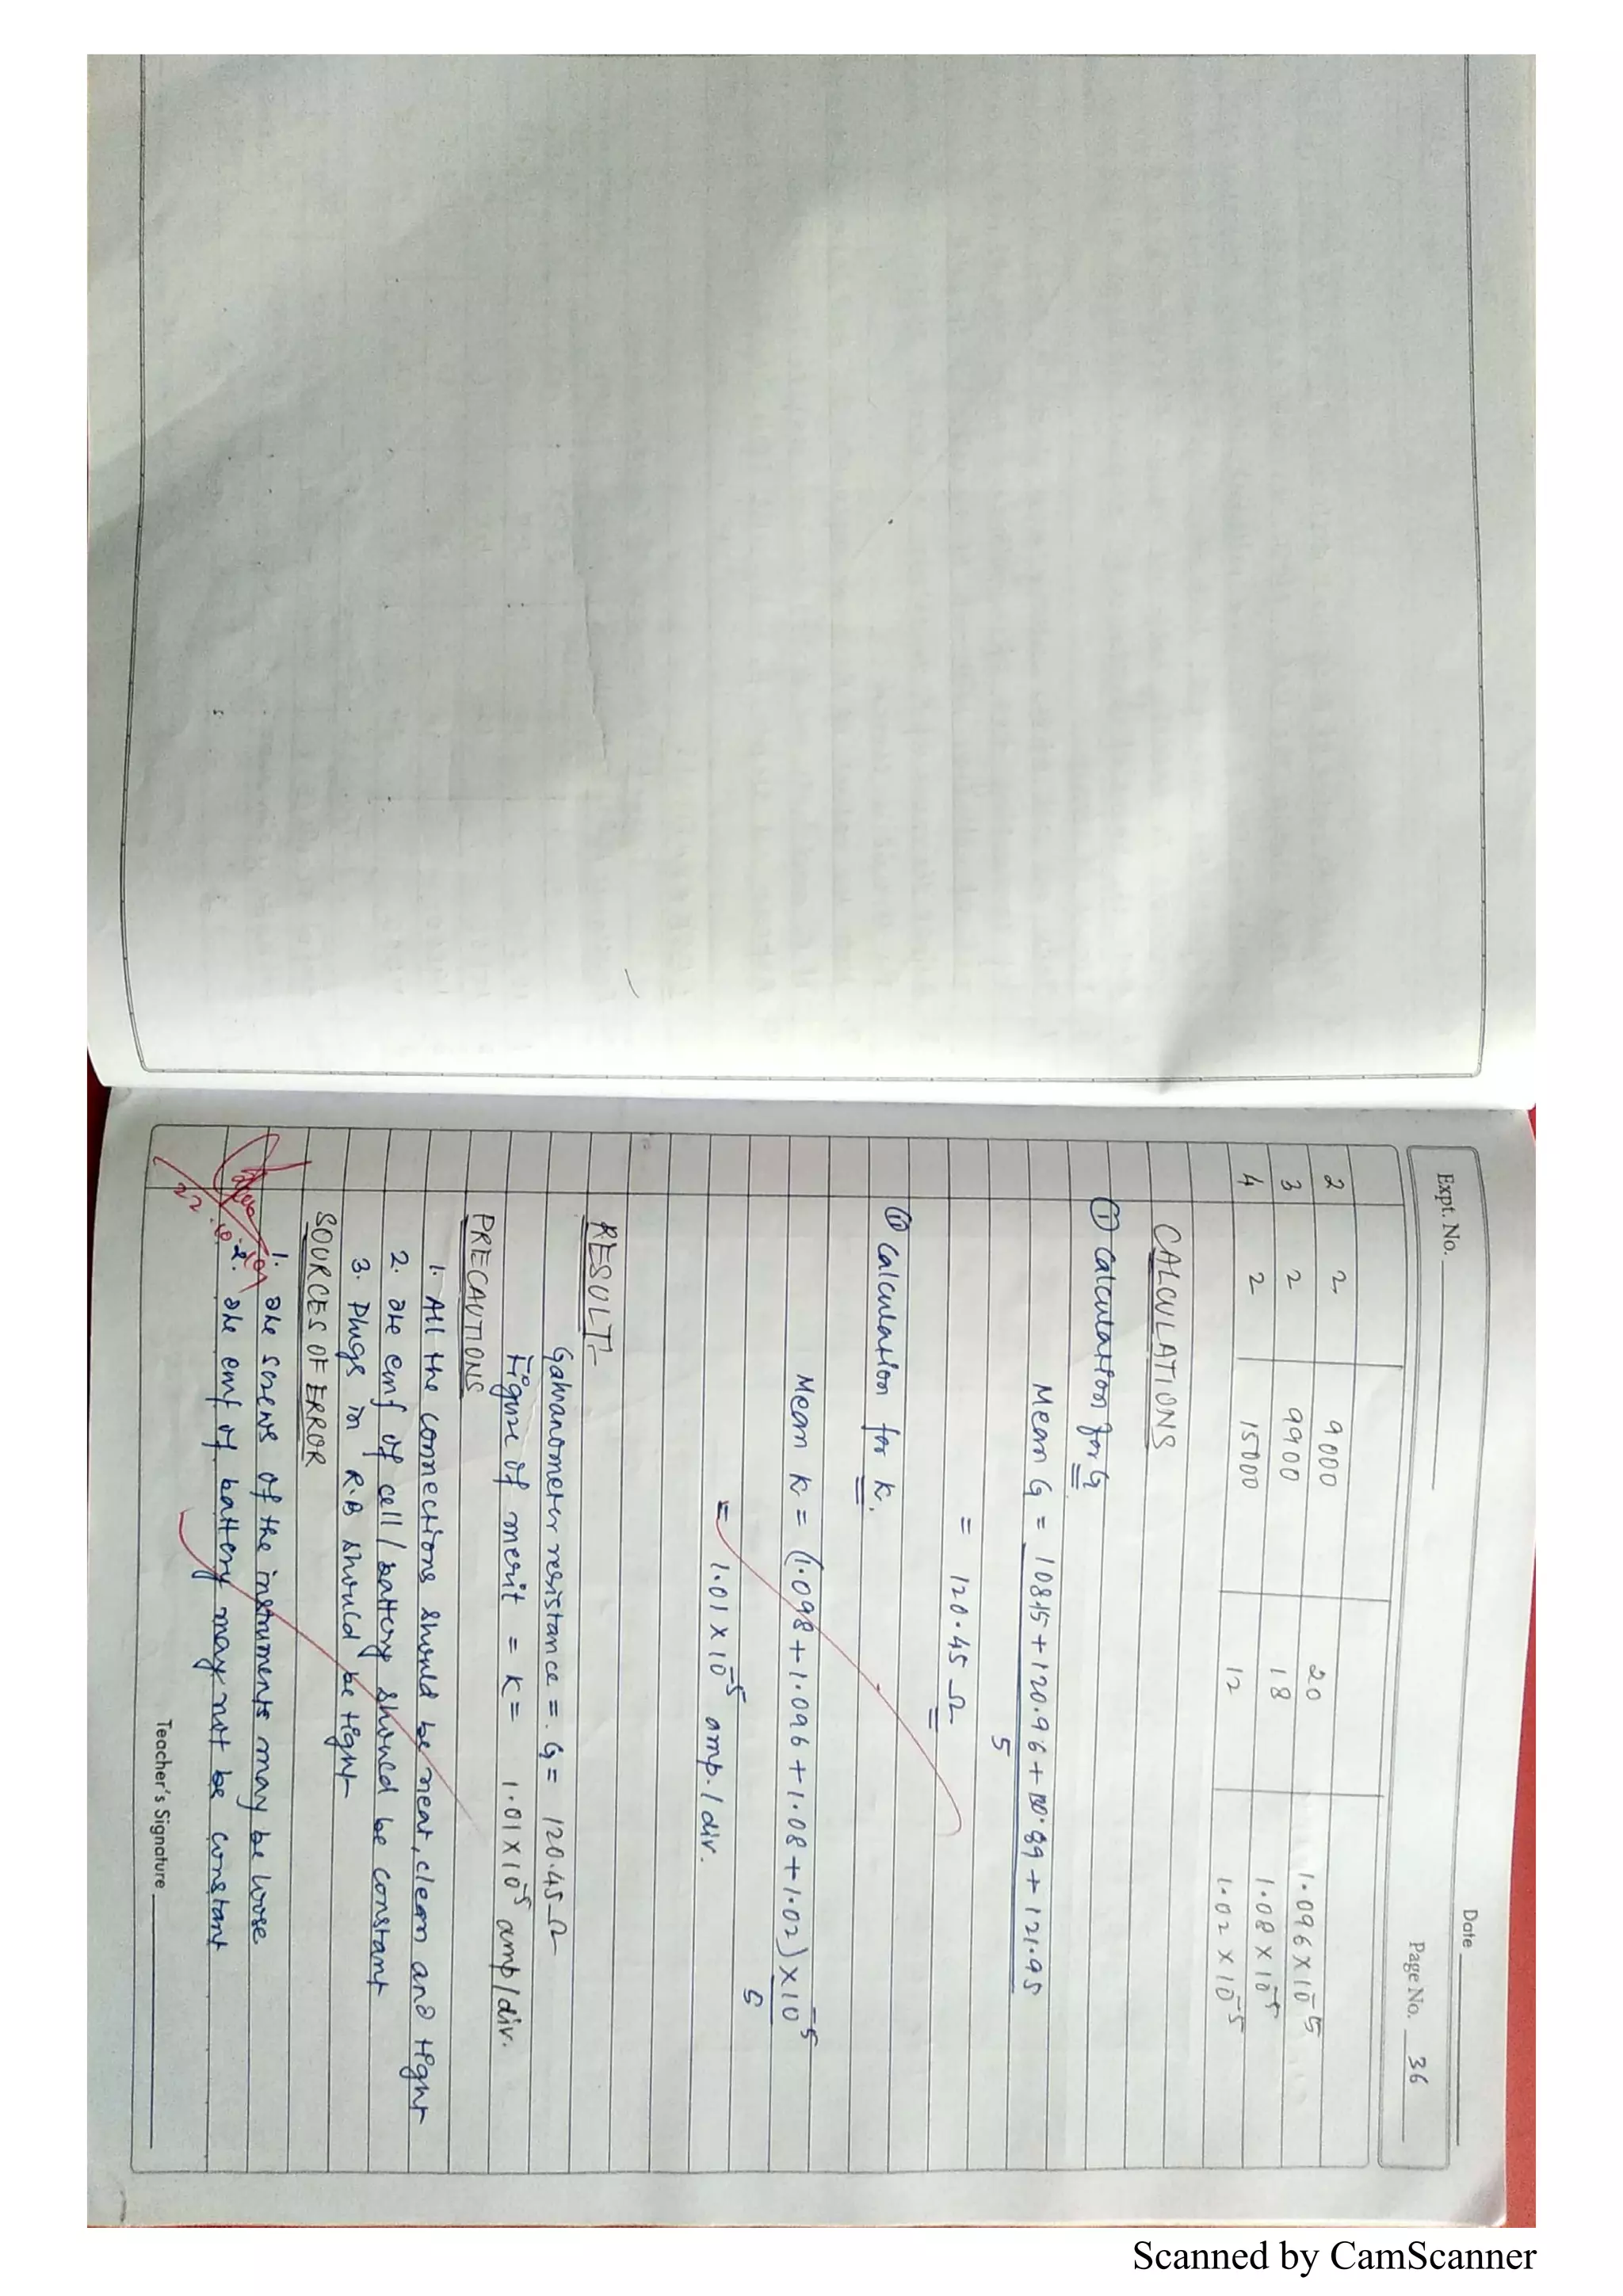 Expt. No.
Date
Page No. 36
2 2 9000 20 1.096 × 10⁻⁵
3 2 9900 18 1.08 × 10⁻⁵
4 2 15000 12 1.02 × 10⁻⁵
CALCULATIONS
(i) Calculation for G
Mean G = 108.15 + 120.96 + + 121.95
5
= 120.45 Ω
(ii) Calculation for K.
Mean K = (1.098 + 1.096 + 1.08 + 1.02) × 10⁻⁵
5
= 1.01 × 10⁻⁵ amp./div.
RESULT:-
Galvanometer resistance = . G = 120.45 Ω
Figure of merit = K = 1.01 × 10⁻⁵ amp/div.
PRECAUTIONS
1. All the connections should be neat, clean and tight
2. The emf of cell / battery should be constant
3. Plugs in R.B should be tight
SOURCES OF ERROR
1. The screws of the instruments may be loose
2. The emf of battery may not be constant
Teacher's Signature
Scanned by CamScanner